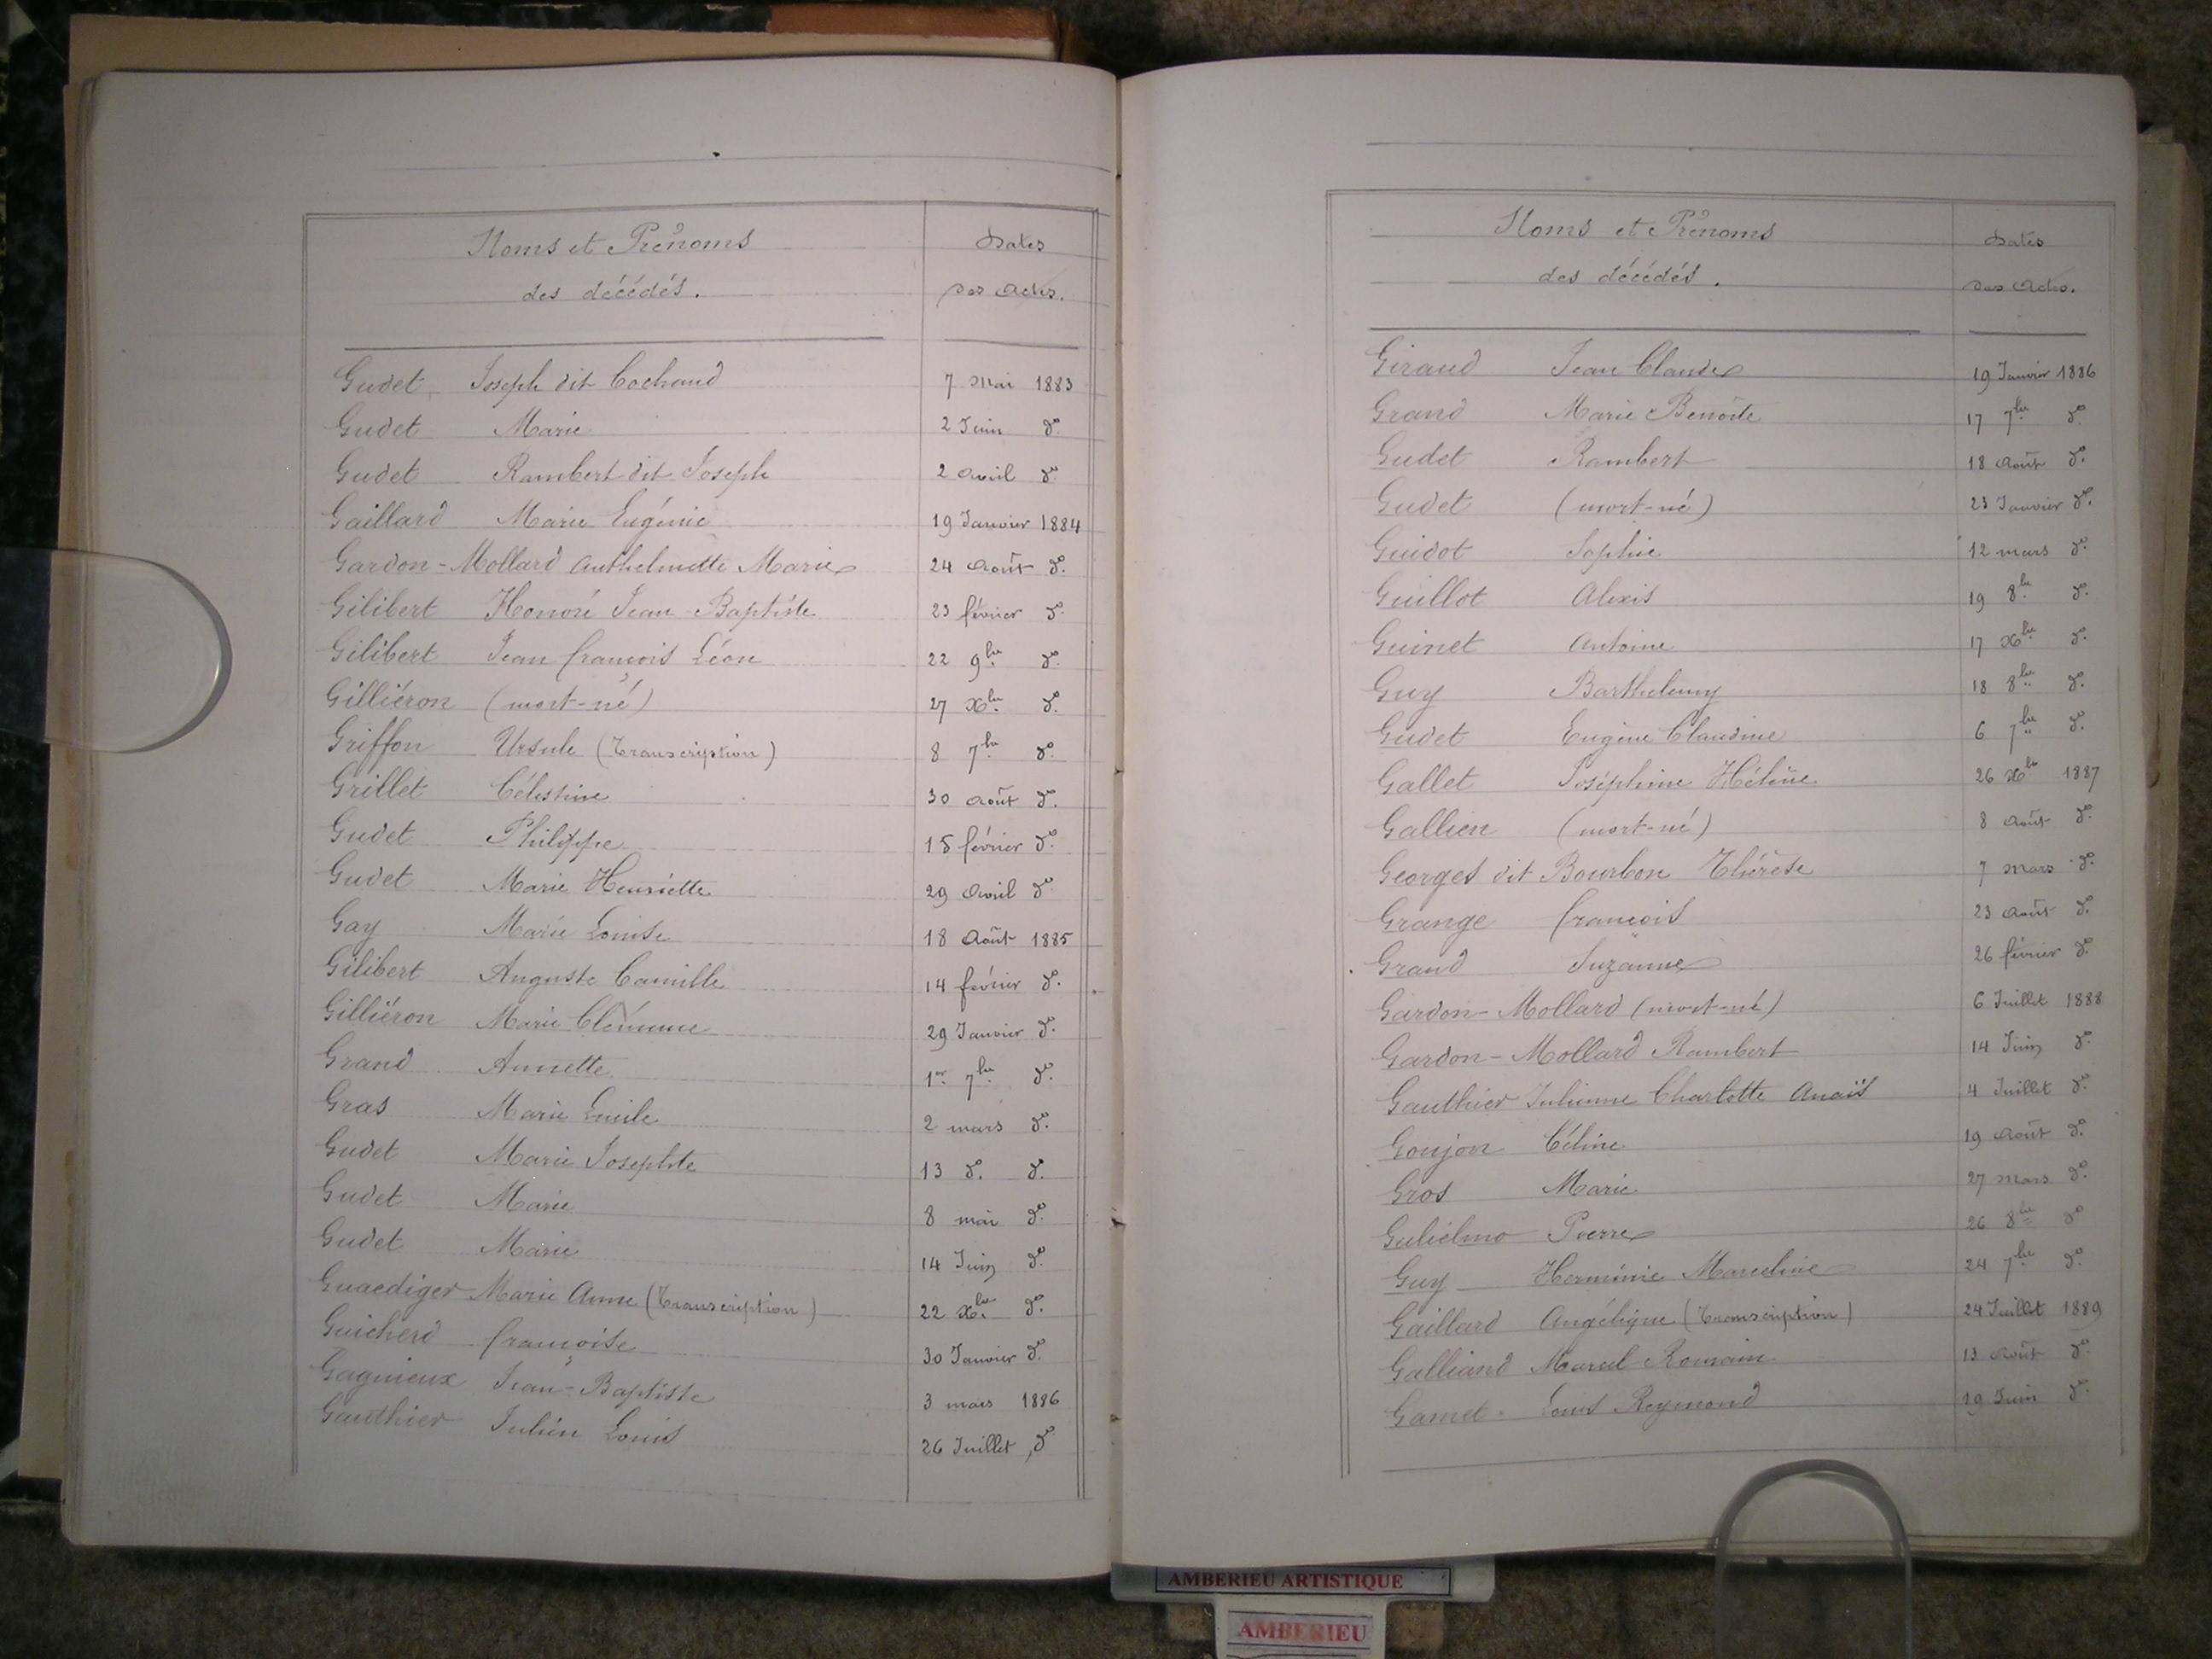 Noms et Prénoms Dates
des décédés. des Actes.
Gudet Joseph dit Cochand 7 Mai 1883
Gudet Marie 2 Juin do
Gudet Rambert dit Joseph 2 Avril do
Gaillard Marie Eugénie 19 Janvier 1884
Gardon-Mollard Anthelmette Marie 24 Août do
Gilibert Honoré Jean-Baptiste 23 février do
Gilibert Jean françois Léon 22 9bre do
Gilliéron (mort-né) 27 Xbre do
Griffon Ursule (Transcription) 8 7bre do
Grillet Célestine 30 Août do
Gudet Philippe 15 février do
Gudet Marie Henriette 29 Avril do
Gay Marie Louise 18 Août 1885
Gilibert Auguste Camille 14 février do
Gilliéron Marie Clémence 29 Janvier do
Grand Annette 1er 7bre do
Gras Marie Lucile 2 mars do
Gudet Marie Josephte 13 do do
Gudet Marie 8 mai do
Gudet Marie 14 Juin do
Guaediger Marie Anne (Transcription) 22 Xbre do
Guicherd françoise 30 Janvier do
Gagnieux Jean-Baptiste 3 mars 1886
Gauthier Julien Louis 26 Juillet do
Noms et Prénoms Dates
des décédés. des Actes.
Giraud Jean Claude 19 Janvier 1886
Grand Marie Benoîte 17 7bre do
Gudet Rambert 18 Août do
Gudet (mort-né) 23 Janvier do
Guidot Sophie 12 mars do
Guillot Alexis 19 8bre do
Guinet Antoine 17 Xbre do
Guy Barthelemy 18 8bre do
Gudet Eugène Claudine 6 7bre do
Gallet Joséphine Hélène 26 Xbre 1887
Gallien (mort-né) 8 Août do
Georges dit Bourbon Thérèse 7 Mars do
Grange françois 23 Août do
Grand Suzanne 26 février do
Gardon-Mollard (mort-né) 6 Juillet 1888
Gardon-Mollard Rambert 14 Juin do
Gauthier Julienne Charlotte Anaïs 4 Juillet do
Goujon Céline 19 Août do
Gros Marie 27 Mars do
Gulielmo Pierre 26 8bre do
Guy Herminie Marceline 24 7bre do
Gaillard Angélique (Transcription) 24 Juillet 1889
Galliand Marcel Romain 13 Août do
Gamet Louis Reymond 19 Juin do
AMBERIEU ARTISTIQUE
AMBERIEU